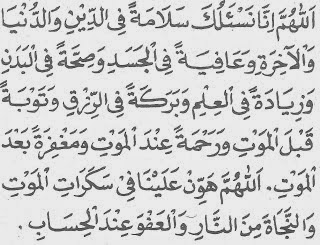 اَللّٰهُمَّ اِنَّا نَسْئَلُكَ سَلَامَةً فِى الدِّيْنِ وَالدُّنْيَا
وَالْآخِرَةِ وَعَافِيَةً فِى الْجَسَدِ وَصِحَّةً فِى الْبَدَنِ
وَزِيَادَةً فِى الْعِلْمِ وَبَرَكَةً فِى الرِّزْقِ وَتَوْبَةً
قَبْلَ الْمَوْتِ وَرَحْمَةً عِنْدَ الْمَوْتِ وَمَغْفِرَةً بَعْدَ
الْمَوْتِ. اَللّٰهُمَّ هَوِّنْ عَلَيْنَا فِىْ سَكَرَاتِ الْمَوْتِ
وَالنَّجَاةَ مِنَ النَّارِ وَالْعَفْوَ عِنْدَ الْحِسَابِ.